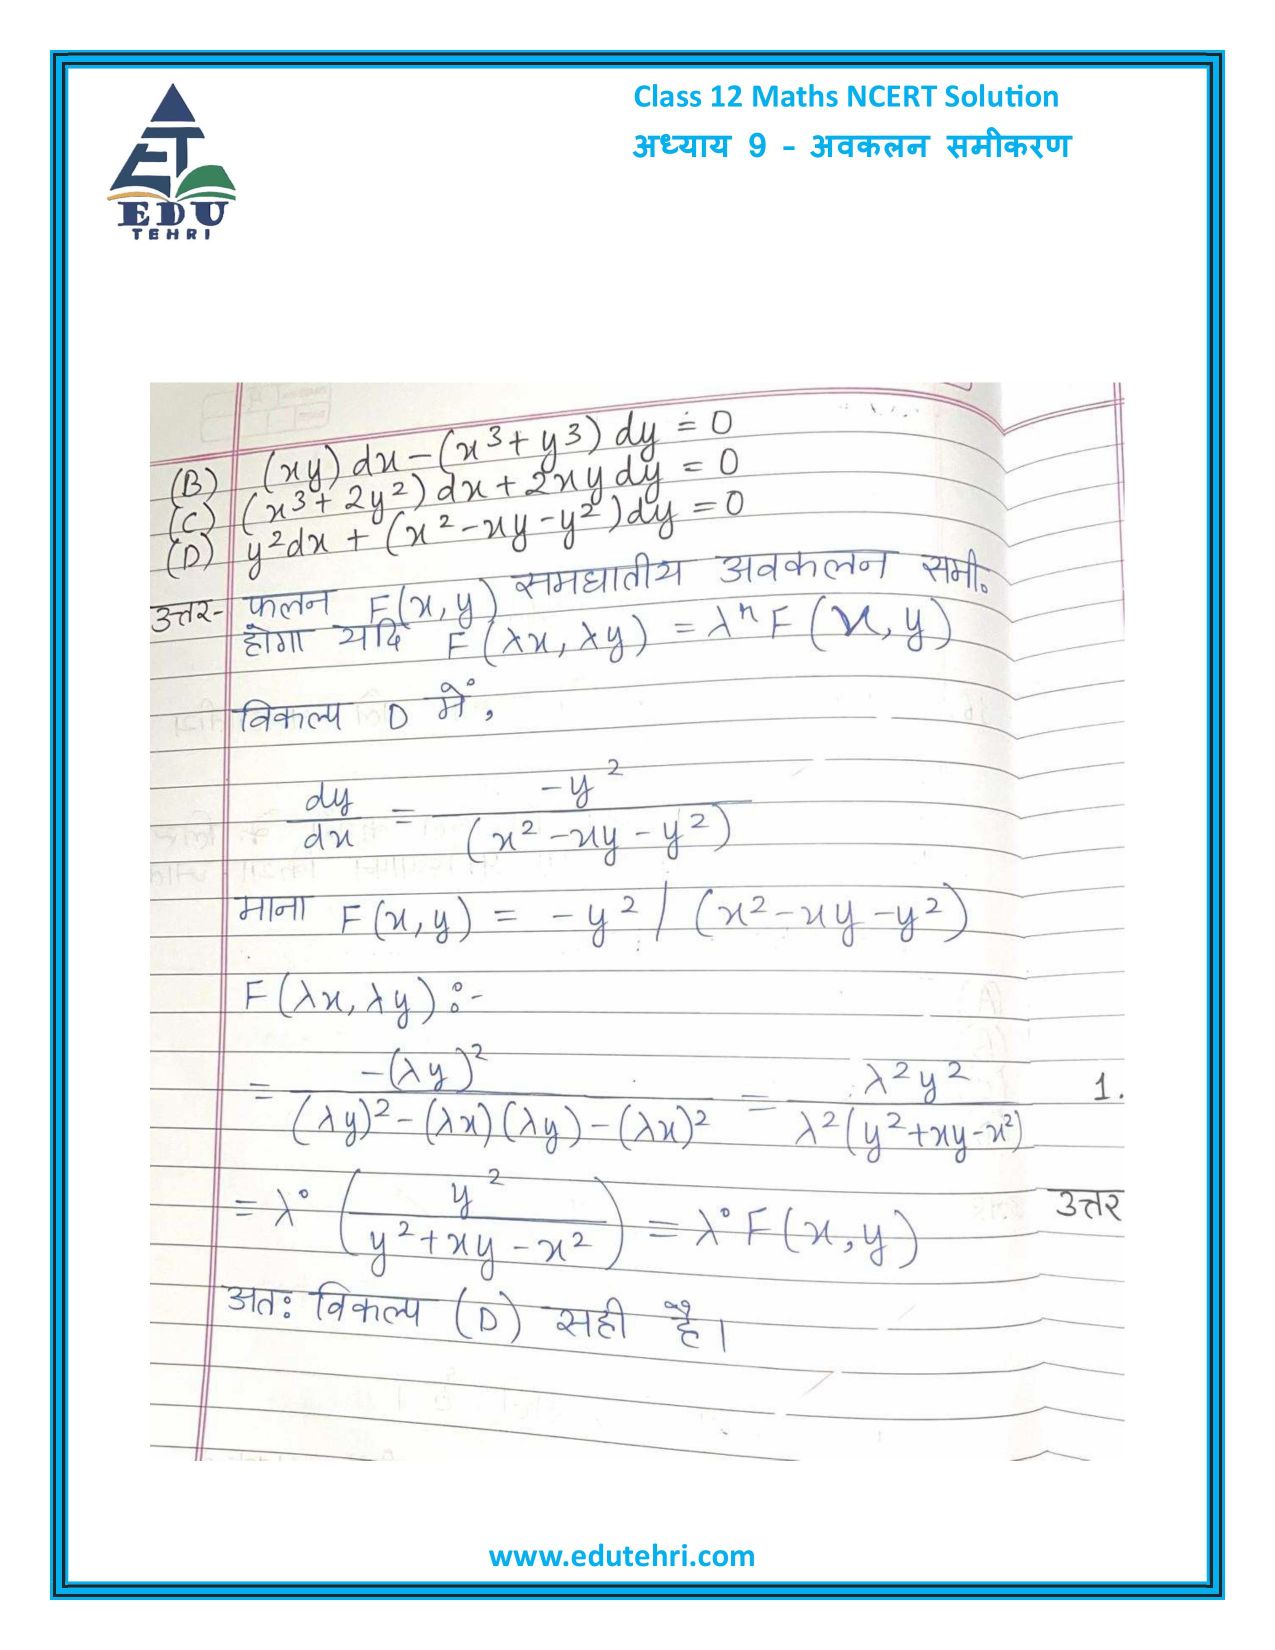 Class 12 Maths NCERT Solution
अध्याय 9 – अवकलन समीकरण
EDU
TEHRI
(B) (xy) dx - (x³ + y³) dy = 0
(C) (x³ + 2y²) dx + 2xy dy = 0
(D) y²dx + (x² - xy - y²)dy = 0
उत्तर- फलन F(x, y) समघातीय अवकलन समी.
होगा यदि F(λx, λy) = λⁿ F(x, y)
विकल्प D में,
dy/dx = -y² / (x² - xy - y²)
माना F(x, y) = -y² / (x² - xy - y²)
F(λx, λy) :-
= -(λy)² / ((λy)² - (λx)(λy) - (λx)²) = λ²y² / (λ²(y² + xy - x²))
1.
= λ° (y² / (y² + xy - x²)) = λ° F(x, y)
उत्तर
अतः विकल्प (D) सही है।
www.edutehri.com